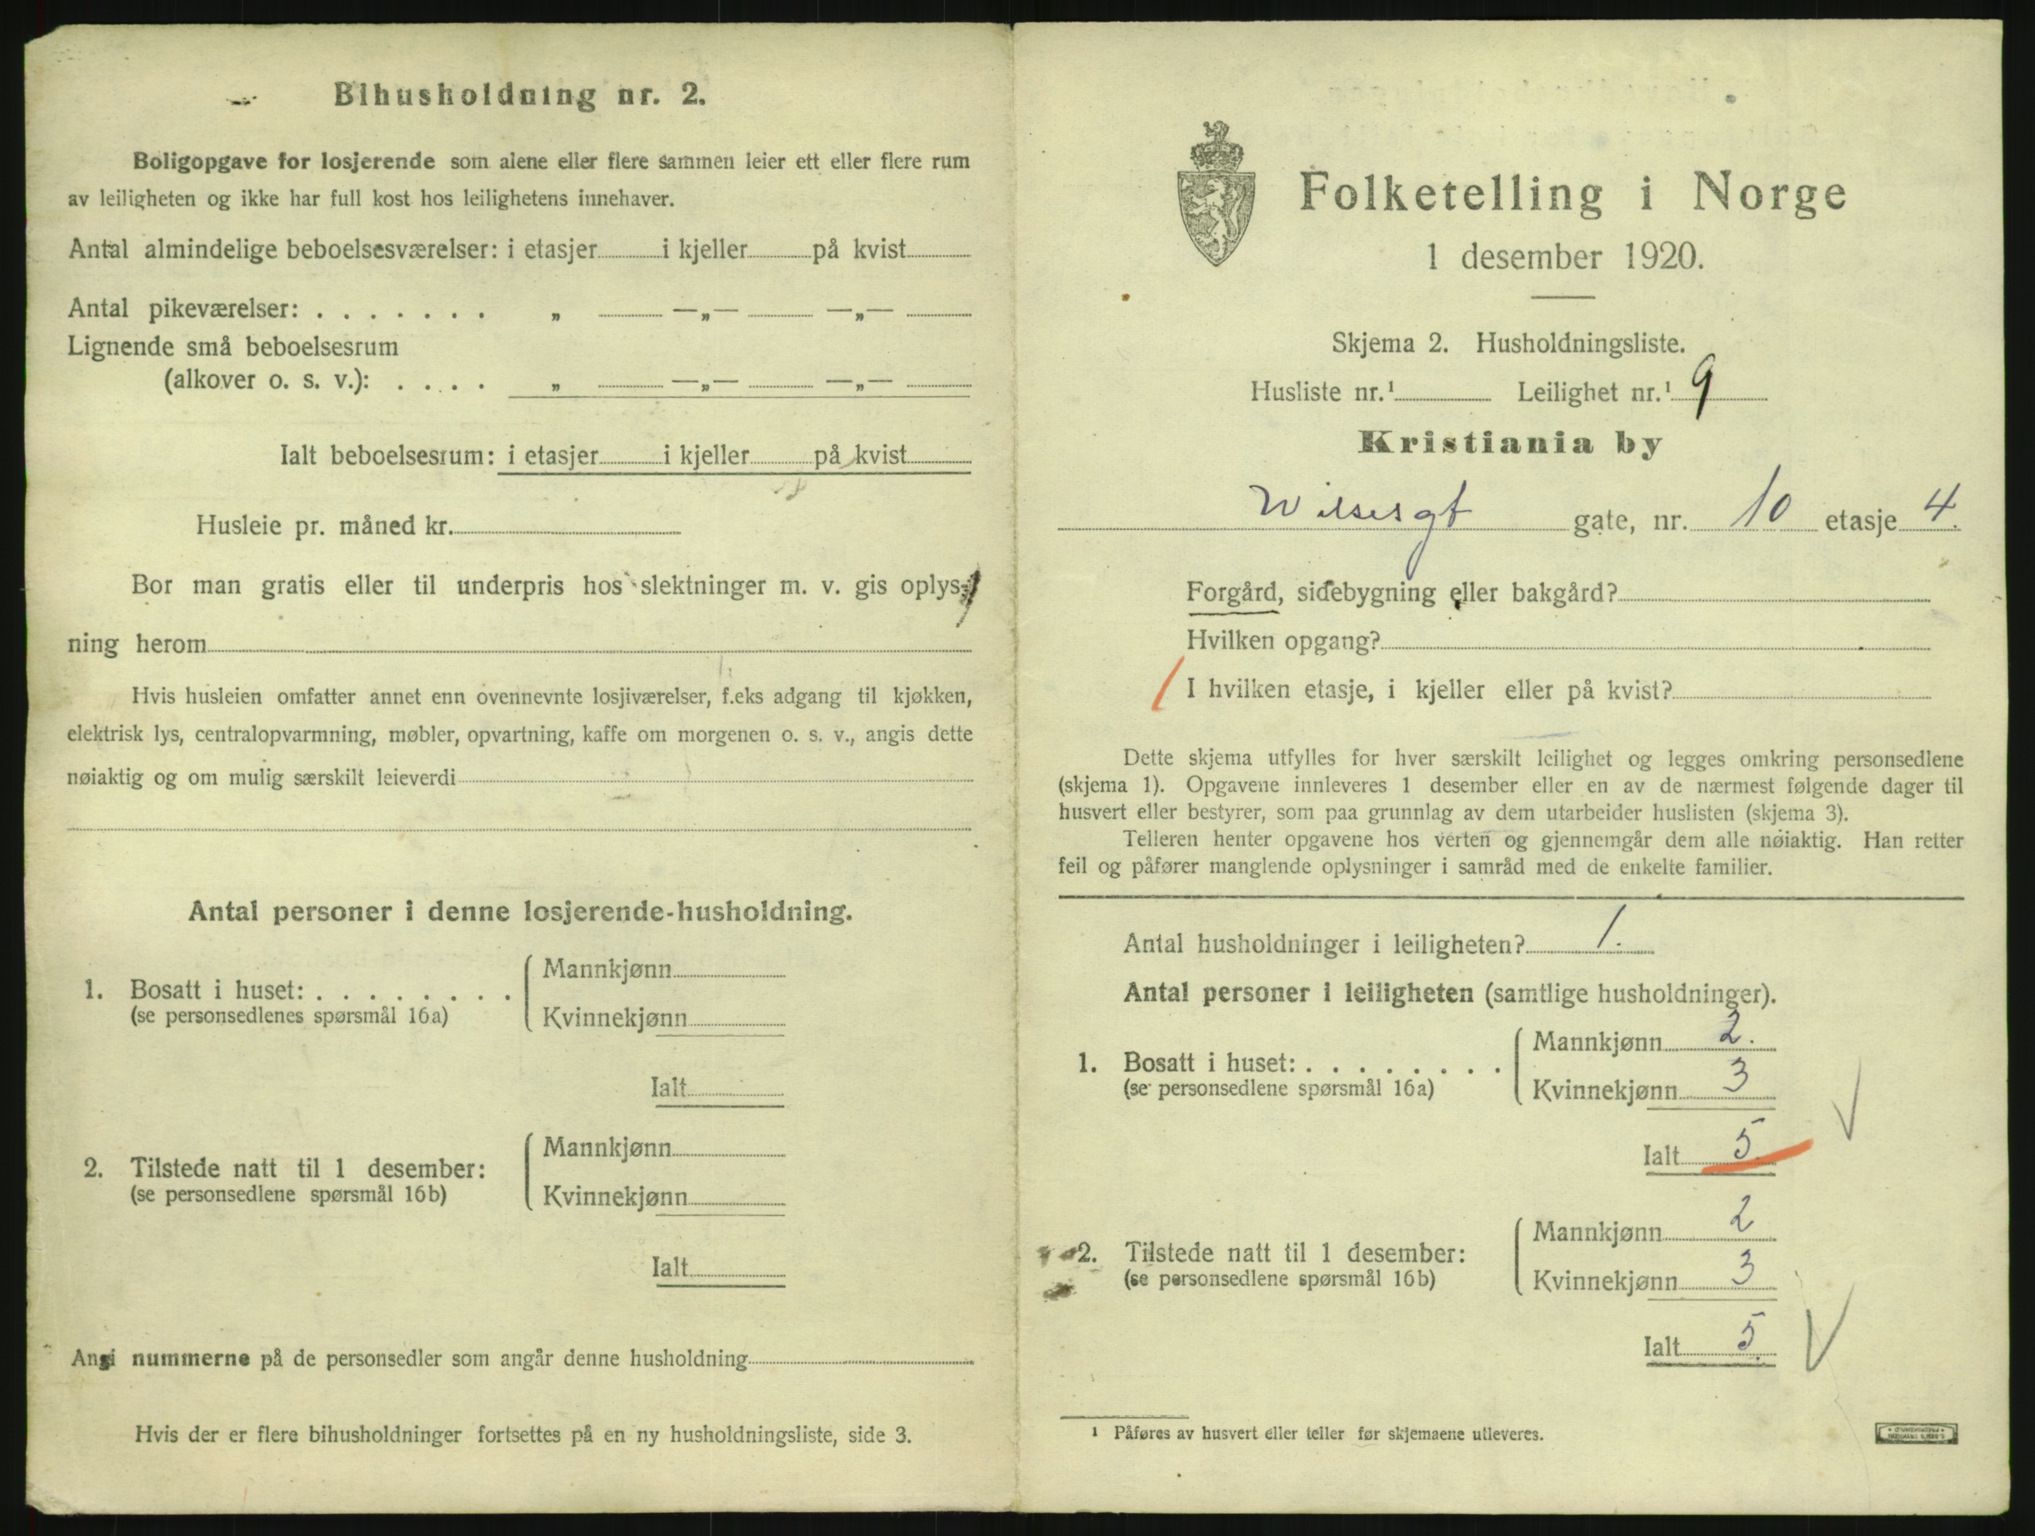 Bihusholdning nr. 2.
Boligopgave for losjerende som alene eller flere sammen leier ett eller flere rum
av leiligheten og ikke har full kost hos leilighetens innehaver.
Antal almindelige beboelsesværelser: i etasjer i kjeller på kvist
Antal pikeværelser: . . . . . . . „ —„— —„—
Lignende små beboelsesrum
(alkover o. s. v.): . . . . „ —„— —„—
Ialt beboelsesrum: i etasjer i kjeller på kvist
Husleie pr. måned kr.
Bor man gratis eller til underpris hos slektninger m. v. gis oplys-
ning herom
Hvis husleien omfatter annet enn ovennevnte losjiværelser, f.eks adgang til kjøkken,
elektrisk lys, centralopvarmning, møbler, opvartning, kaffe om morgenen o. s. v., angis dette
nøiaktig og om mulig særskilt leieverdi
Antal personer i denne losjerende-husholdning.
1. Bosatt i huset: . . . . . . . . Mannkjønn
(se personsedlenes spørsmål 16a) Kvinnekjønn
Ialt
2. Tilstede natt til 1 desember: Mannkjønn
(se personsedlene spørsmål 16b) Kvinnekjønn
Ialt
Angi nummerne på de personsedler som angår denne husholdning
Hvis der er flere bihusholdninger fortsettes på en ny husholdningsliste, side 3.
Folketelling i Norge
1 desember 1920.
Skjema 2. Husholdningsliste.
Husliste nr.¹ Leilighet nr.¹ 9
Kristiania by
Wilsesgt gate, nr. 10 etasje 4.
Forgård, sidebygning eller bakgård?
Hvilken opgang?
I hvilken etasje, i kjeller eller på kvist?
Dette skjema utfylles for hver særskilt leilighet og legges omkring personsedlene
(skjema 1). Opgavene innleveres 1 desember eller en av de nærmest følgende dager til
husvert eller bestyrer, som paa grunnlag av dem utarbeider huslisten (skjema 3).
Telleren henter opgavene hos verten og gjennemgår dem alle nøiaktig. Han retter
feil og påfører manglende oplysninger i samråd med de enkelte familier.
Antal husholdninger i leiligheten? 1.
Antal personer i leiligheten (samtlige husholdninger).
1. Bosatt i huset: . . . . . . . . Mannkjønn 2.
(se personsedlene spørsmål 16a) Kvinnekjønn 3
Ialt 5.
2. Tilstede natt til 1 desember: Mannkjønn 2
(se personsedlene spørsmål 16b) Kvinnekjønn 3
Ialt 5.
¹ Påføres av husvert eller teller før skjemaene utleveres.